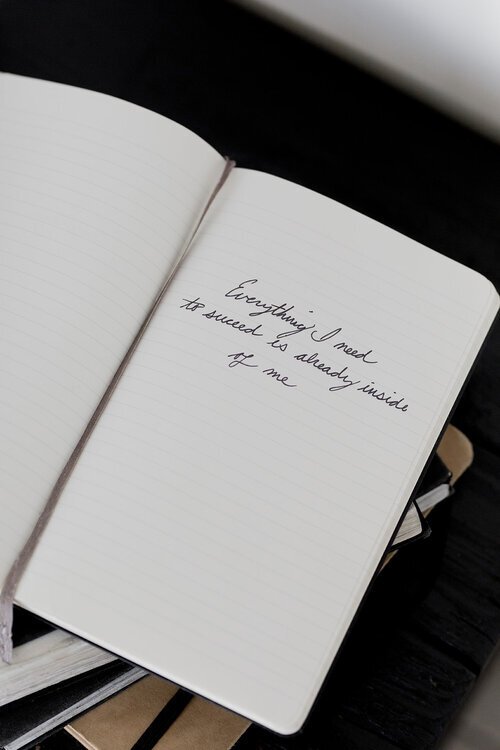 Everything I need
to succeed is already inside
of me